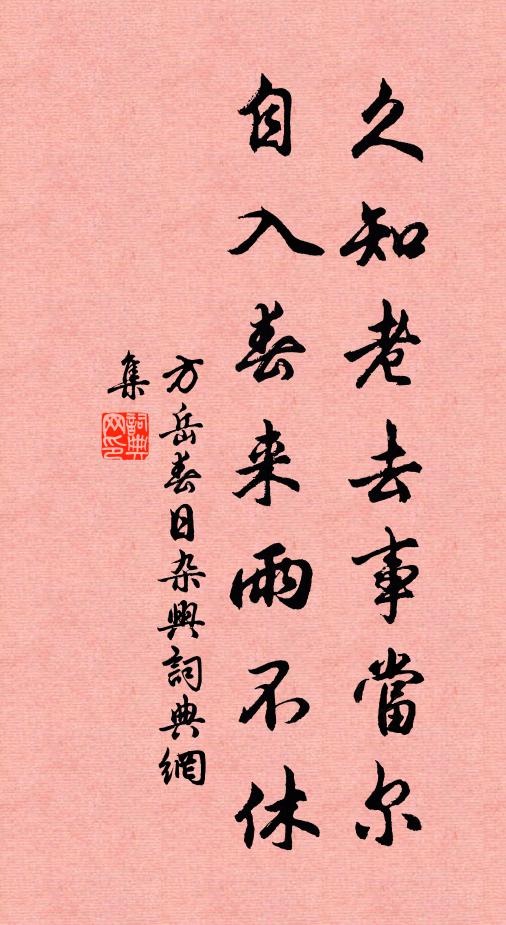 久知老去事當尔
自入春来雨不休
方岳春日杂興詞典網
集
詞典
网印